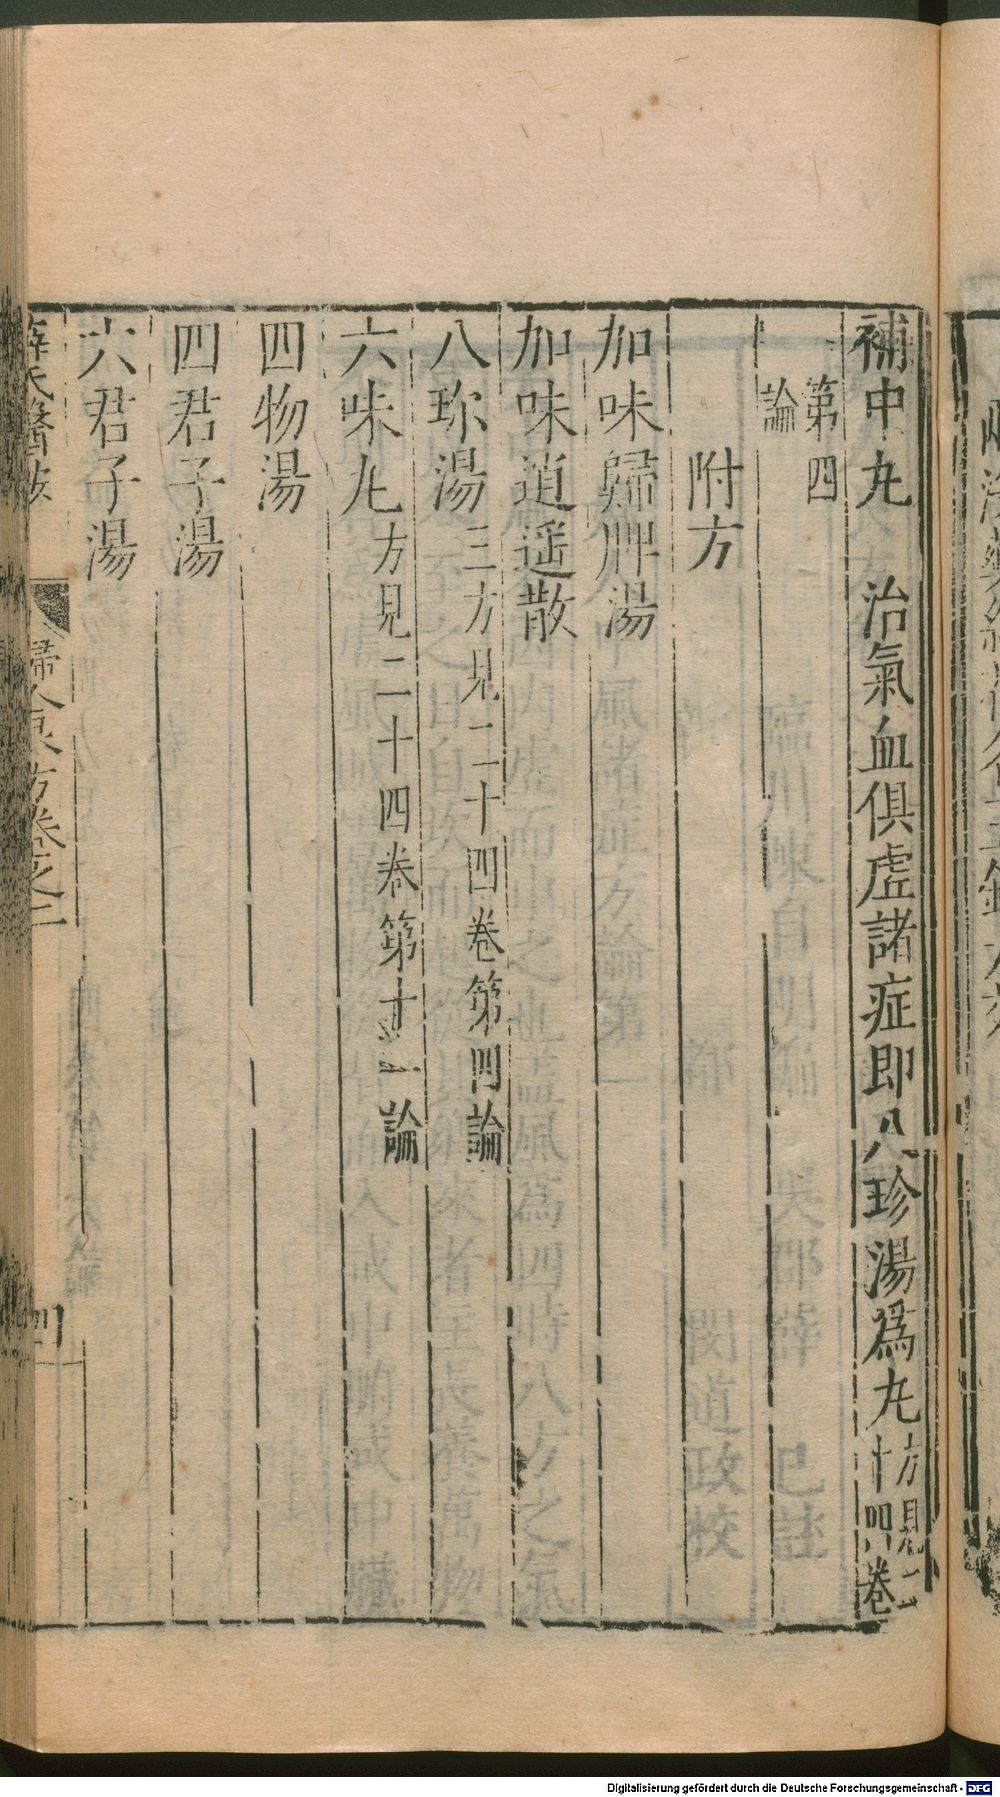 補中丸　治氣血俱虛諸症即八珍湯爲丸方見二十四卷
第四論
附方
加味歸脾湯
加味逍遥散
八珎湯三方見二十四卷第四論
六味丸方見二十四卷第十一論
四物湯
四君子湯
六君子湯
薛氏醫按　婦人良方卷之二　四
Digitalisierung gefördert durch die Deutsche Forschungsgemeinschaft - DFG